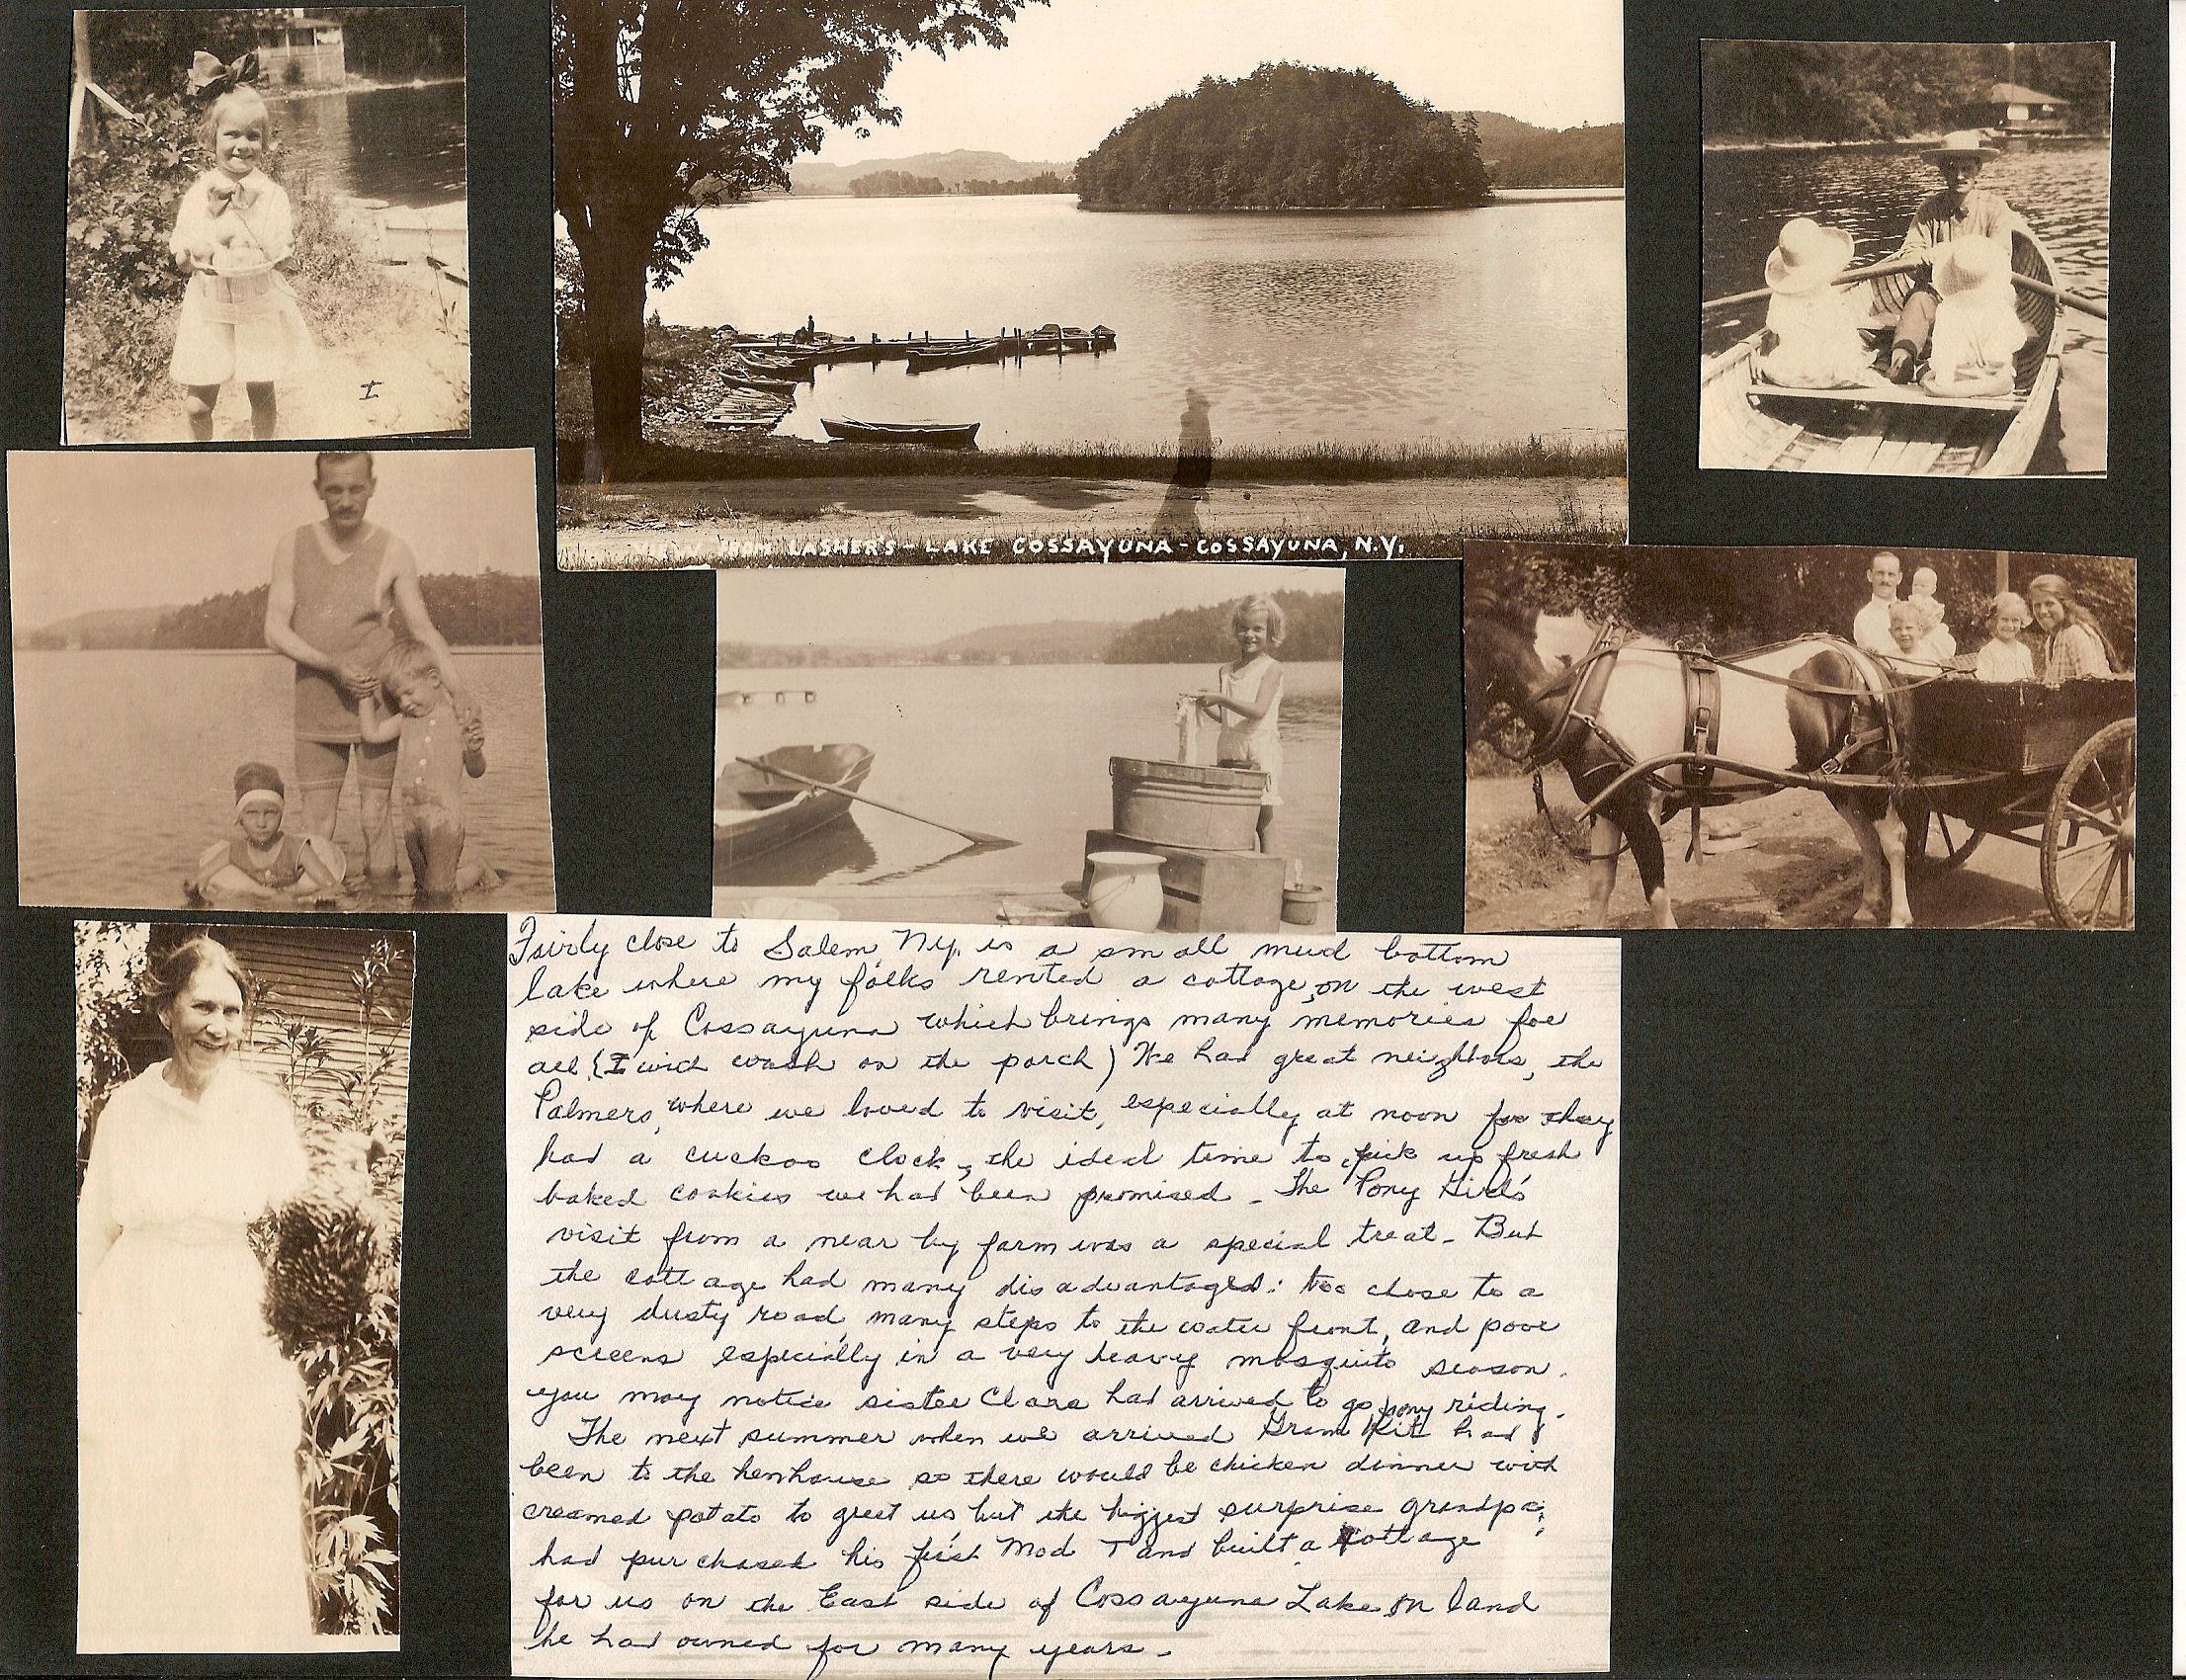 I
FROM LASHER'S - LAKE COSSAYUNA - COSSAYUNA, N.Y.
Fairly close to Salem, N.Y. is a small mud bottom
lake where my folks rented a cottage, on the west
side of Cossayuna which brings many memories for
all. (I wich wash on the porch) We had great neighbors, the
Palmers, where we loved to visit, especially at noon for they
had a cuckoo clock, the ideal time to pick up fresh
baked cookies we had been promised - The Pony Girl's
visit from a near by farm was a special treat - But
the cottage had many disadvantages: too close to a
very dusty road, many steps to the water front, and poor
screens especially in a very heavy mosquito season.
you may notice sister Clara had arrived to go pony riding.
The next summer when we arrived Gram Kit had
been to the henhouse so there would be chicken dinner with
creamed potato to greet us but the biggest surprise grandpa
had purchased his first Mod T and built a cottage
for us on the East side of Cossayuna Lake on land
he had owned for many years -